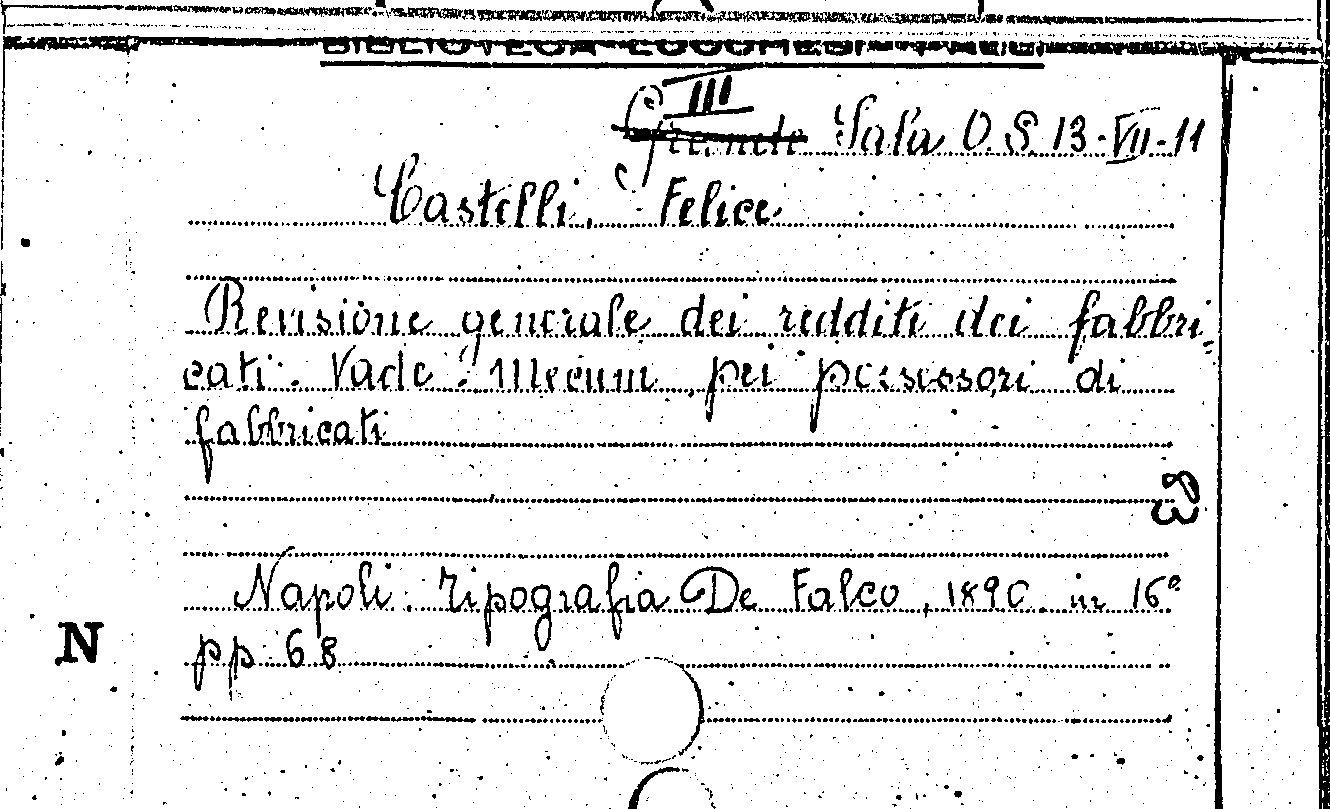 BIBLIOTECA LUCCHESI
III
Grande Sala O. S. 13-VII-11
Castelli, Felice
Revisione generale dei redditi dei fabbri„
cati. Vade-Mecum pei possessori di
fabbricati
Napoli. Tipografia De Falco, 1890. in 16°
N
pp. 68